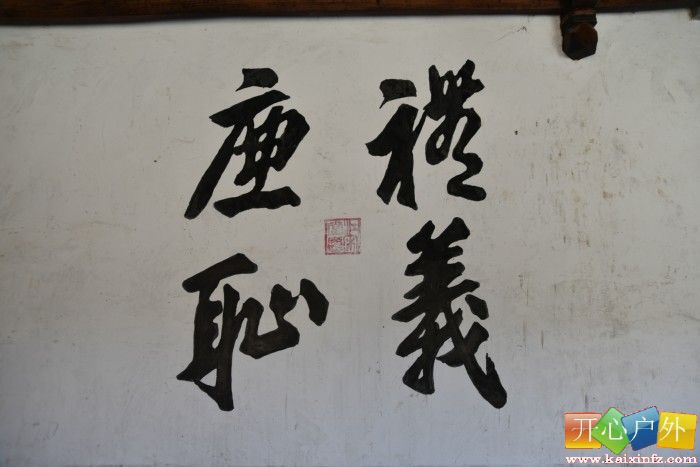 禮義
廉恥
开心户外
www.kaixinfz.com